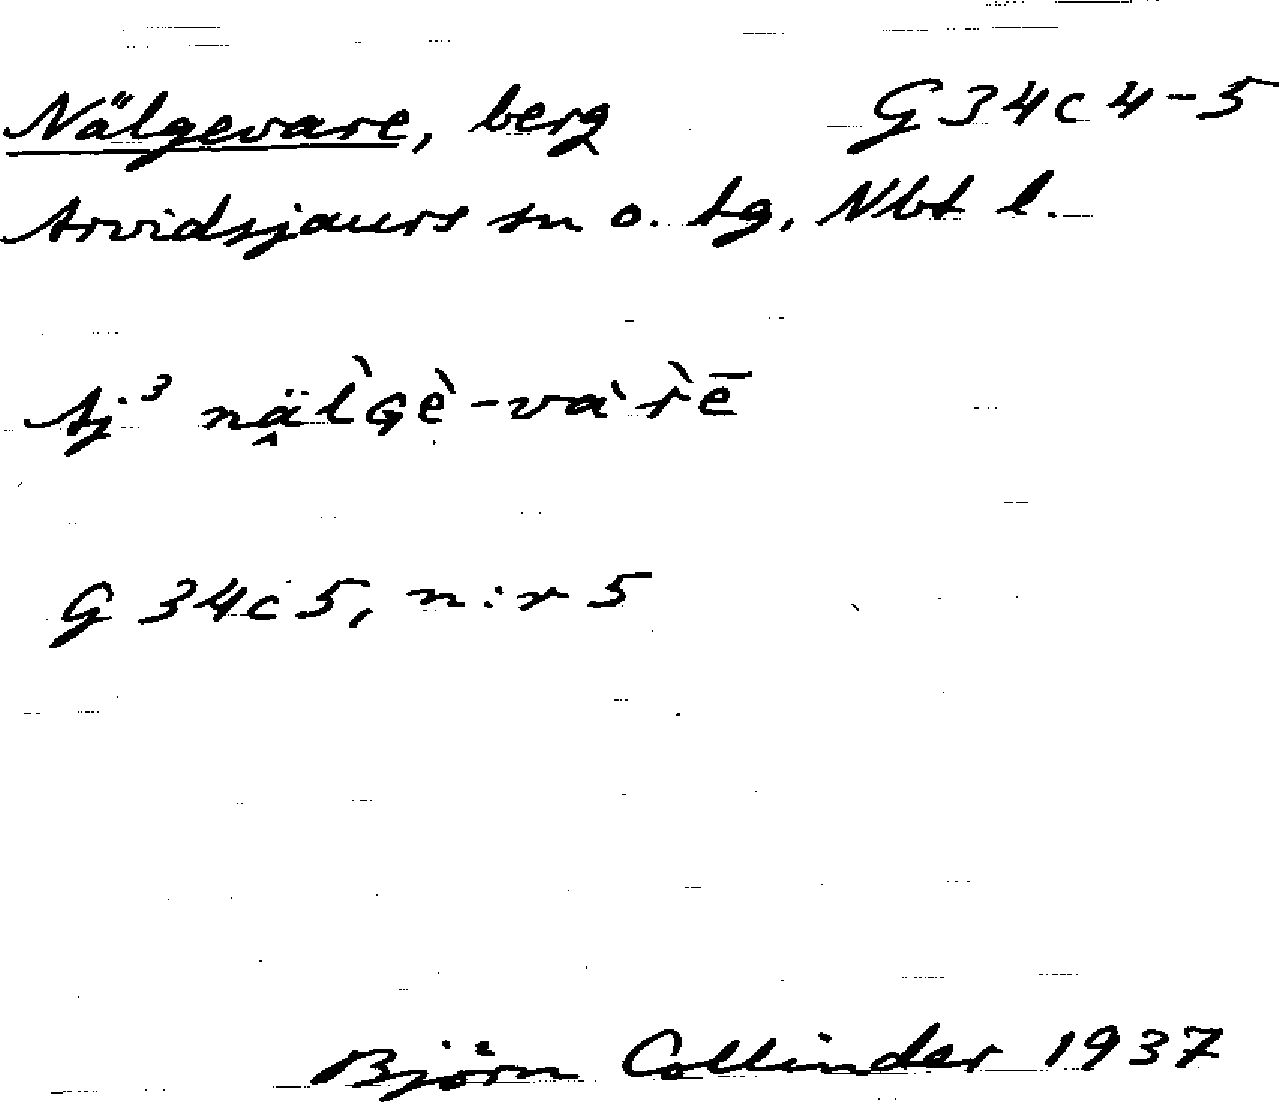 Nälgevare, berg G 34 c 4-5
Arvidsjaurs sn o. tg, Nbt l.
Aj³ nä̭l̀Gè-vàr̀ē
G 34c5, n:r 5
Björn Collinder 1937